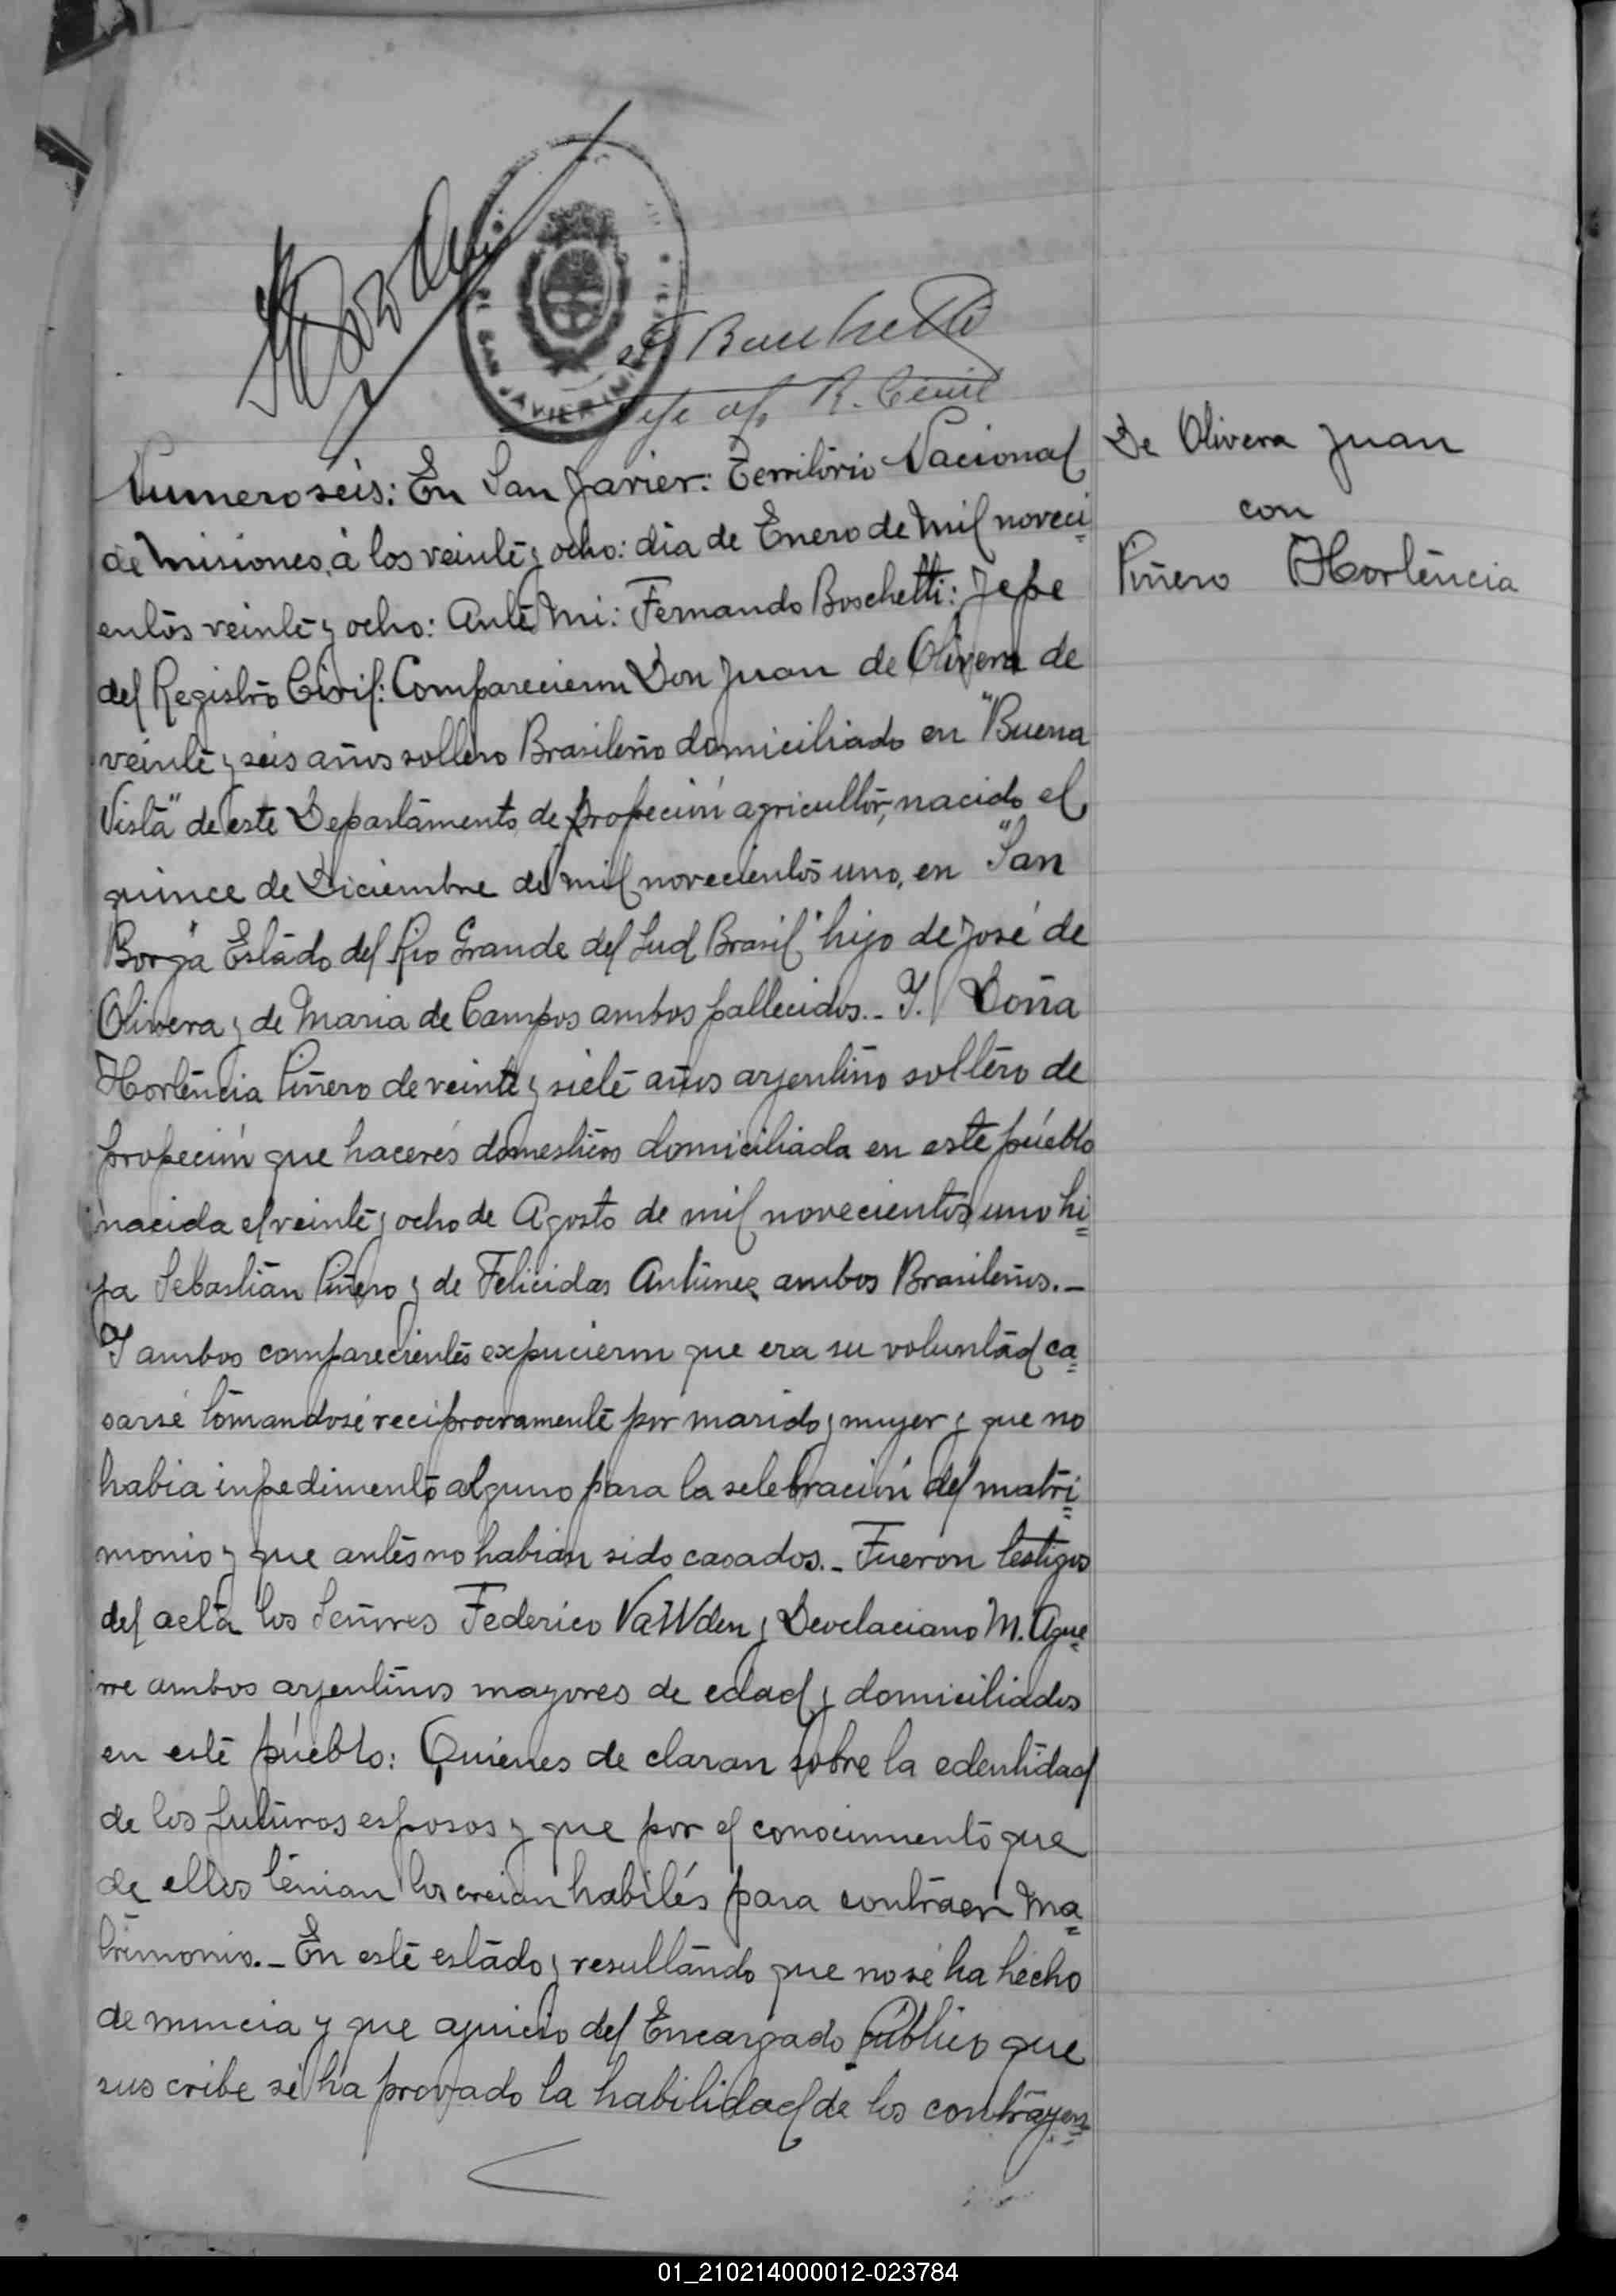 SAN JAVIER
F Boschetti
Jefe of. R. Civil
De Olivera Juan
con
Piñero Hortencia
Numero seis: En San Javier: Territorio Nacional
de Misiones, á los veinte y ocho: dia de Enero de Mil noveci=
entos veinte y ocho: Ante Mi: Fernando Boschetti: Jefe
del Registro Civil: Comparecieron Don Juan de Olivera de
veinte y seis años soltero Brasileño domiciliado en "Buena
Vista" de este Departamento de profeción agricultor, nacido el
quince de Diciembre de mil novecientos uno, en "San
Borja" Estado del Rio Grande del Sud Brasil" hijo de José de
Olivera y de Maria de Campos ambos fallecidos.- Y. Doña
Hortencia Piñero de veinte y siete años arjentino soltero de
profeción que haceres domesticos domiciliada en este pueblo
nacida el veinte y ocho de Agosto de mil novecientos uno hi=
ja Sebastian Piñero y de Felicidas Antunez ambos Brasileños.-
Y ambos comparecientes expucieron que era su voluntad ca=
sarse tomandose reciprocramente por marido y mujer y que no
habia inpedimento alguno para la selebración del matri=
monio y que antes no habian sido casados.- Fueron testigos
del acta los Señores Federico VaWden y Develaciano M. Ague=
rre ambos arjentinos mayores de edad y domiciliados
en este pueblo: Quienes de claran sobre la edentidad
de los futuros esposos y que por el conocimiento que
de ellos tenian los creian habiles para contraer Ma=
trimonio.- En este estado y resultando que no se ha hecho
de nuncia y que ajuicio del Encargado Público que
sus cribe se ha provado la habilidad de los contrayen=
01_210214000012-023784